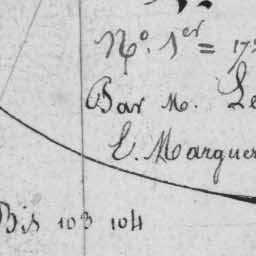 No. 1er = 17
Bar M. Le
E. Marguer
Bis 103 104